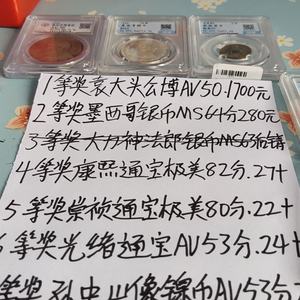 1等奖袁大头公博AV50.1700元
2等奖墨西哥银币MS64分280元
3等奖大力神法郎银币MS63后铸
4等奖康熙通宝极美82分.27+
5等奖崇祯通宝极美80分.22+
6等奖光绪通宝AV53分.24+
等奖孙中山像镍币AV53分